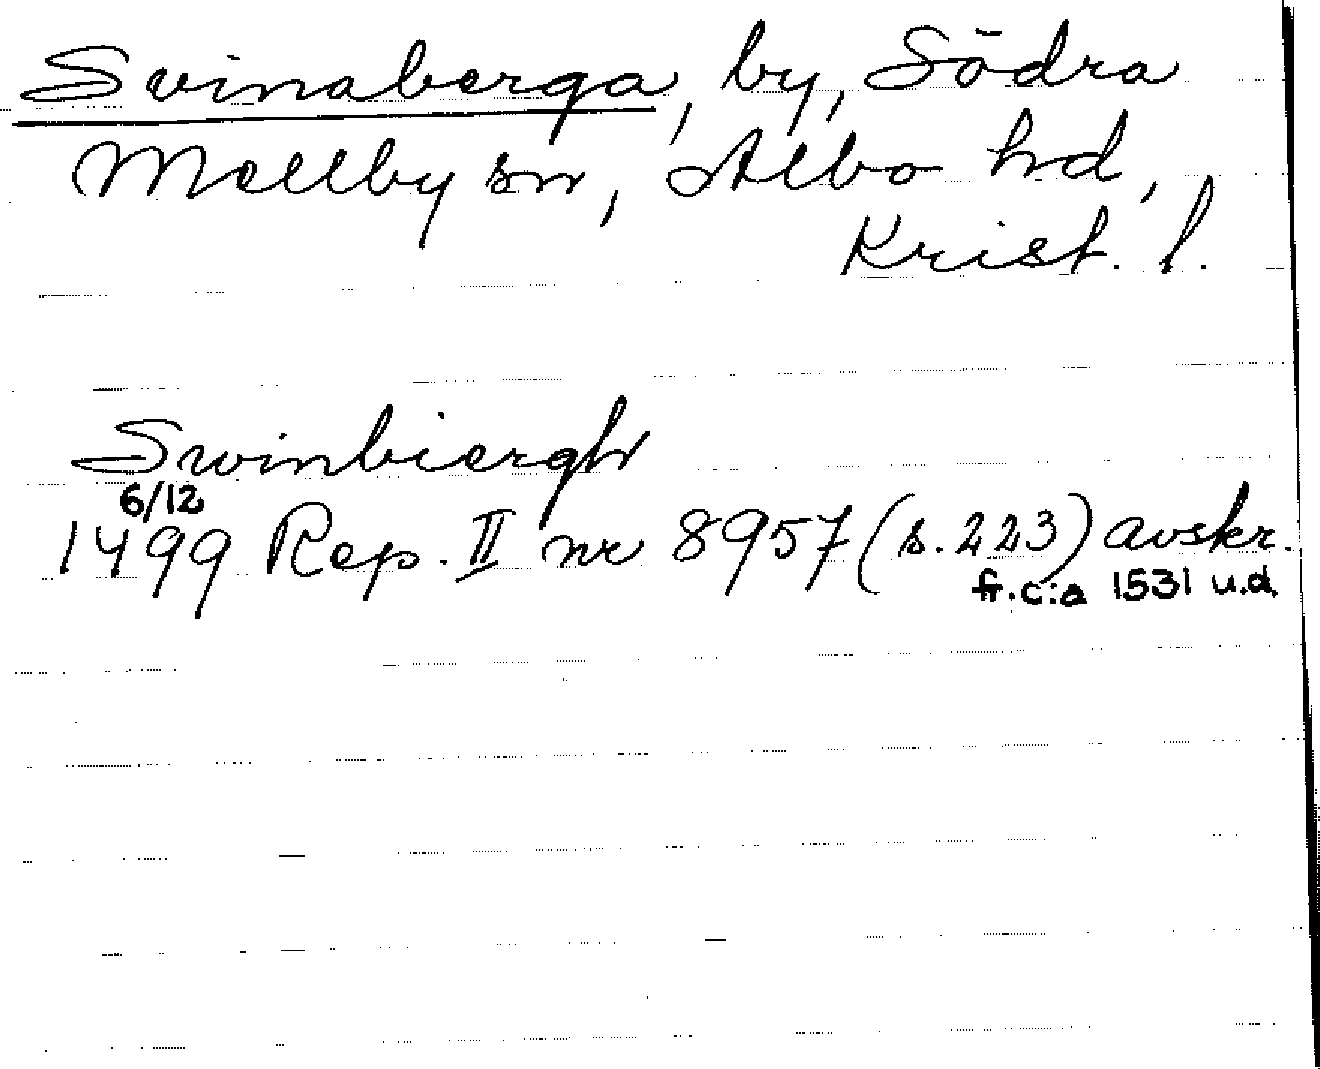 Svinaberga, by, Södra
Mellby sn, Albo hd,
Krist. l.
Swinbiergh
6/12
1499 Rep. II nr 8957 (s. 223) avskr.
fr. c:a 1531 u.d.